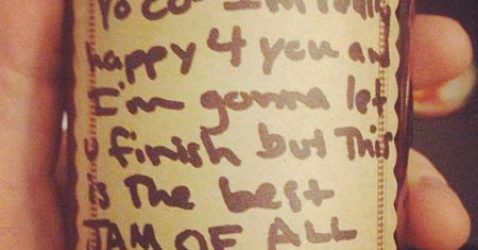 Yo I'm really
happy 4 you an
I'm gonna let
u finish but This
is The best
JAM OF ALL